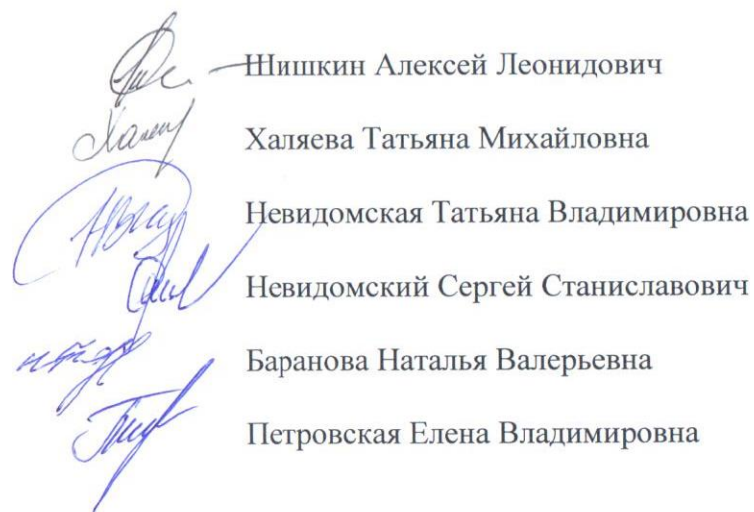 Шишкин Алексей Леонидович
Халяева Татьяна Михайловна
Невидомская Татьяна Владимировна
Невидомский Сергей Станиславович
Баранова Наталья Валерьевна
Петровская Елена Владимировна